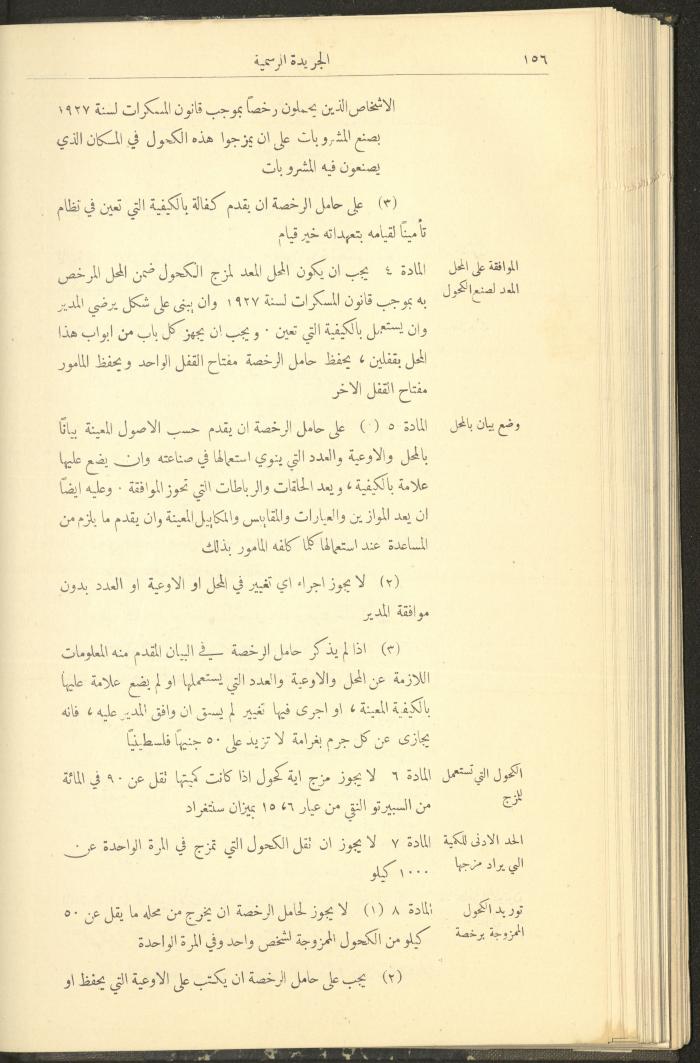 ١٥٦
الجريدة الرسمية
الاشخاص الذين يحملون رخصاً بموجب قانون المسكرات لسنة ١٩٢٧
بصنع المشروبات على ان يمزجوا هذه الكحول في المكان الذي
يصنعون فيه المشروبات
(٣) على حامل الرخصة ان يقدم كفالة بالكيفية التي تعين في نظام
تأميناً لقيامه بتعهداته خير قيام
الموافقة على المحل
المعد لصنع الكحول
المادة ٤ يجب ان يكون المحل المعد لمزج الكحول ضمن المحل المرخص
به بموجب قانون المسكرات لسنة ١٩٢٧ وان يبنى على شكل يرضي المدير
وان يستعمل بالكيفية التي تعين . ويجب ان يجهز كل باب من ابواب هذا
المحل بقفلين ، يحفظ حامل الرخصة مفتاح القفل الواحد ويحفظ المامور
مفتاح القفل الاخر
وضع بيان بالمحل
المادة ٥ (١) على حامل الرخصة ان يقدم حسب الاصول المعينة بياناً
بالمحل والاوعية والعدد التي ينوي استعمالها في صناعته وان يضع عليها
علامة بالكيفية ، ويعد الحلقات والرباطات التي تحوز الموافقة . وعليه ايضاً
ان يعد الموازين والعيارات والمقاييس والمكاييل المعينة وان يقدم ما يلزم من
المساعدة عند استعمالها كلما كلفه المامور بذلك
(٢) لا يجوز اجراء اي تغيير في المحل او الاوعية او العدد بدون
موافقة المدير
(٣) اذا لم يذكر حامل الرخصة في البيان المقدم منه المعلومات
اللازمة عن المحل والاوعية والعدد التي يستعملها او لم يضع علامة عليها
بالكيفية المعينة ، او اجرى فيها تغيير لم يسبق ان وافق المدير عليه ، فانه
يجازى عن كل جرم بغرامة لا تزيد على ٥٠ جنيهاً فلسطينياً
الكحول التي تستعمل
للمزج
المادة ٦ لا يجوز مزج اية كحول اذا كانت كميتها تقل عن ٩٠ في المائة
من السبيرتو النقي من عيار ١٥،٦ بميزان سنتغراد
الحد الادنى للكمية
التي يراد مزجها
المادة ٧ لا يجوز ان تقل الكحول التي تمزج في المرة الواحدة عن
١٠٠٠ كيلو
توريد الكحول
الممزوجة برخصة
المادة ٨ (١) لا يجوز لحامل الرخصة ان يخرج من محله ما يقل عن ٥٠
كيلو من الكحول الممزوجة لشخص واحد وفي المرة الواحدة
(٢) يجب على حامل الرخصة ان يكتب على الاوعية التي يحفظ او